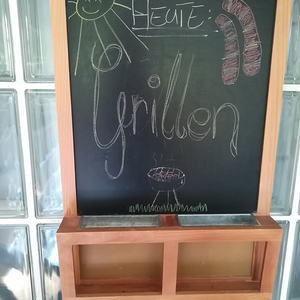 HEUTE:
Grillen